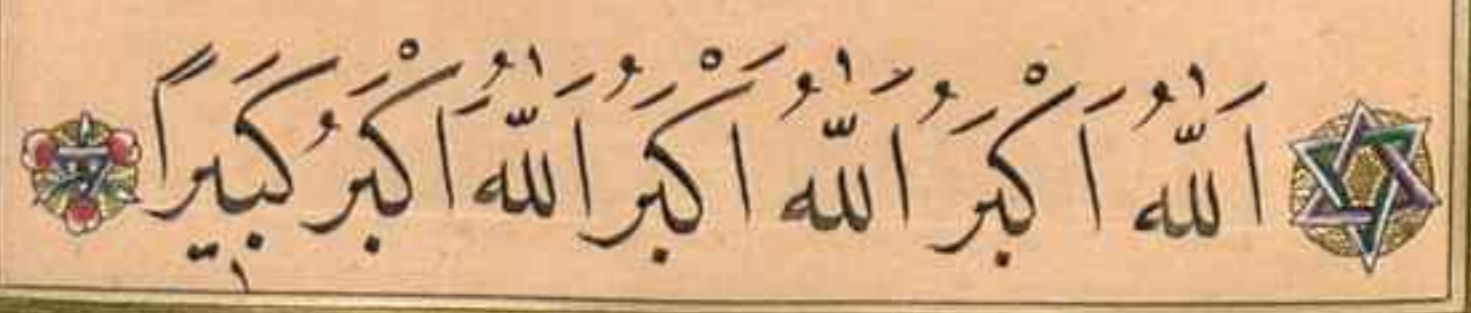 اَللّٰهُ اَكْبَرُ اَللّٰهُ اَكْبَرُ اَللّٰهُ اَكْبَرُ كَبٖيرًا